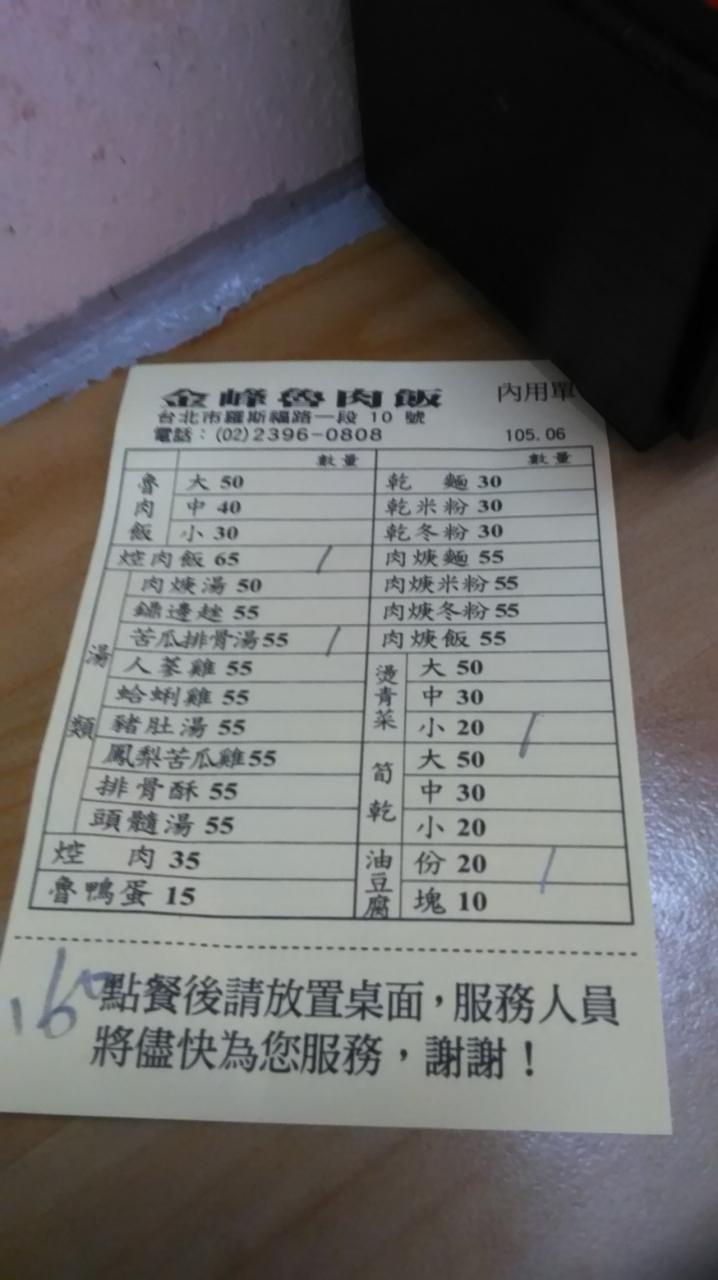 金峰魯肉飯 內用單
台北市羅斯福路一段 10 號
電話：(02)2396-0808 105.06
數量 數量
魯肉飯 大 50
中 40
小 30
焢肉飯 65 /
湯類 肉焿湯 50
鏢邊趖 55
苦瓜排骨湯55 /
人蔘雞 55
蛤蜊雞 55
豬肚湯 55
鳳梨苦瓜雞55
排骨酥 55
頭髓湯 55
焢 肉 35
魯鴨蛋 15
乾 麵 30
乾米粉 30
乾冬粉 30
肉焿麵 55
肉焿米粉55
肉焿冬粉55
肉焿飯 55
燙青菜 大 50
中 30
小 20 /
筍乾 大 50
中 30
小 20
油豆腐 份 20 /
塊 10
160
點餐後請放置桌面，服務人員
將儘快為您服務，謝謝！